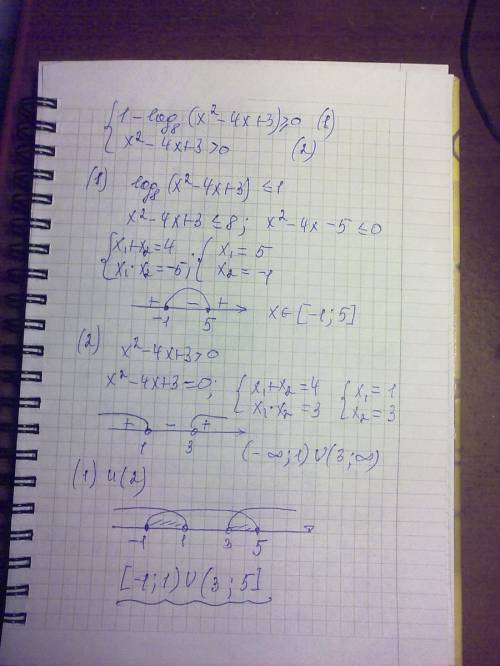 { 1 - log₈(x² - 4x + 3) ≥ 0 (1)
{ x² - 4x + 3 > 0 (2)
(1) log₈(x² - 4x + 3) ≤ 1
x² - 4x + 3 ≤ 8; x² - 4x - 5 ≤ 0
{ x₁ + x₂ = 4 { x₁ = 5
{ x₁ · x₂ = -5; { x₂ = -1
+ - +
-1 5 x ∈ [-1; 5]
(2) x² - 4x + 3 > 0
x² - 4x + 3 = 0; { x₁ + x₂ = 4 { x₁ = 1
{ x₁ · x₂ = 3 { x₂ = 3
+ - +
1 3
(-∞; 1) ∪ (3; ∞)
(1) и (2)
-1 1 3 5
[-1; 1) ∪ (3; 5]